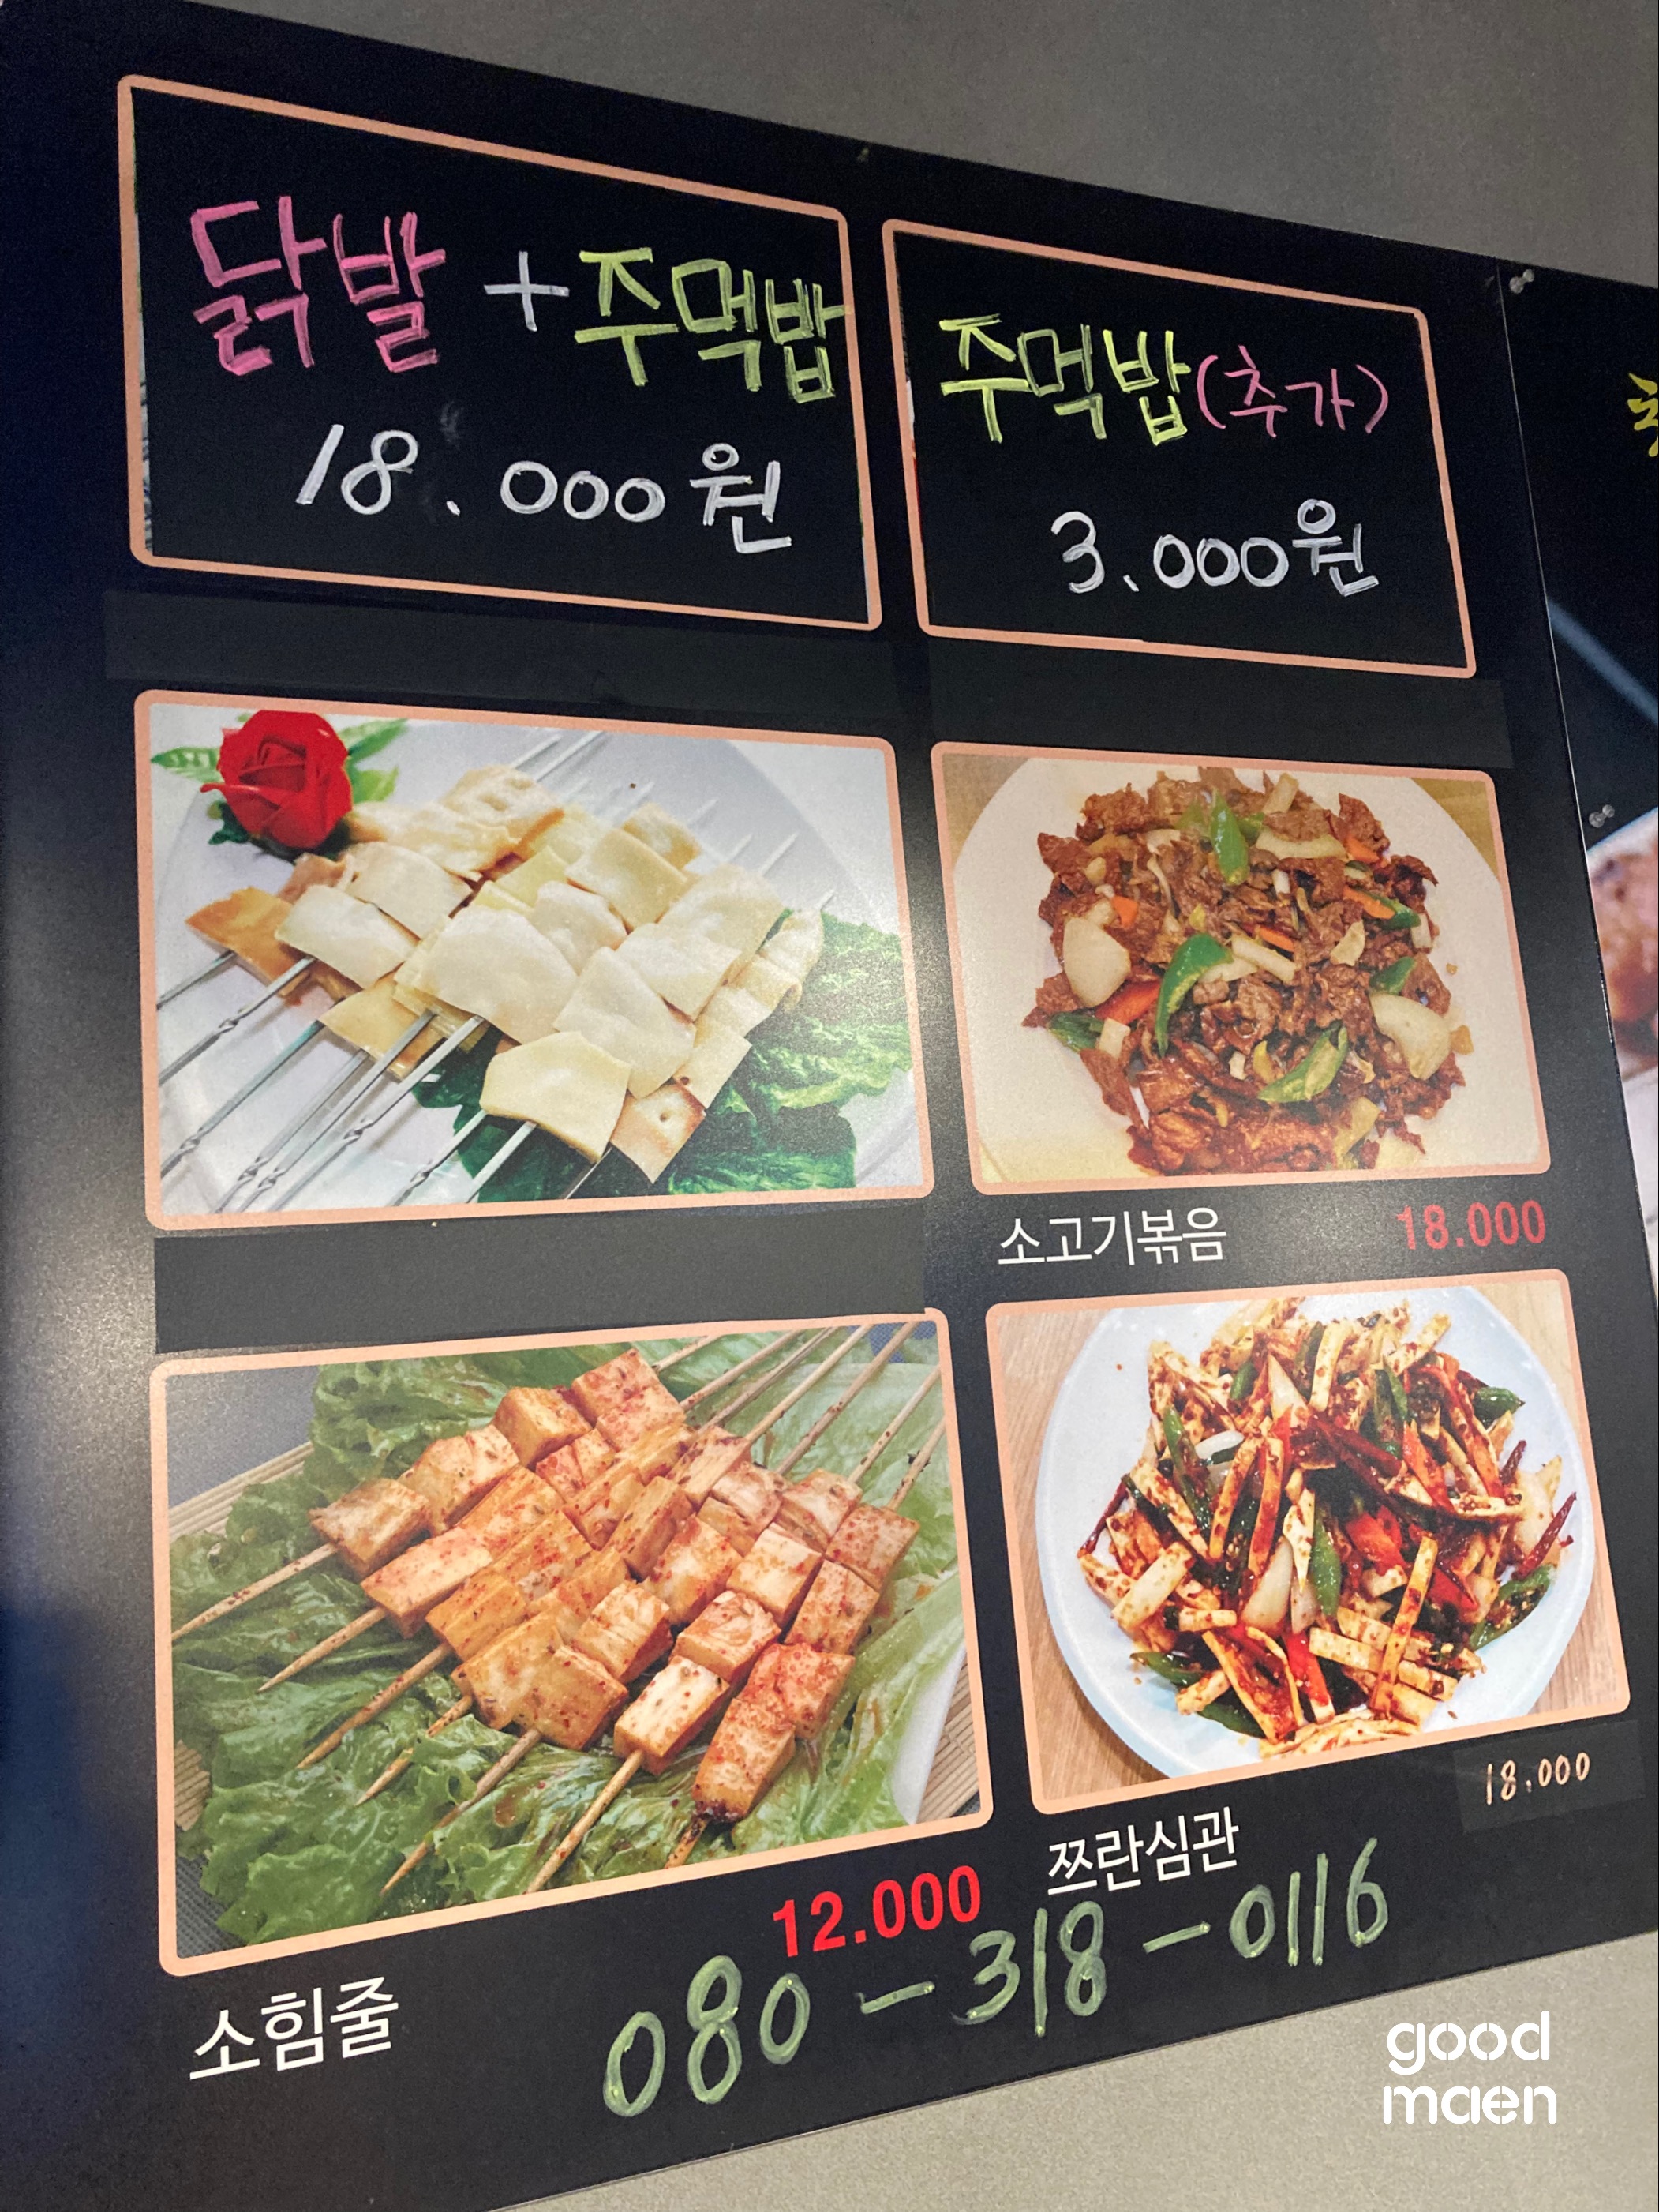 닭발 + 주먹밥
18.000원
주먹밥(추가)
3.000원
소고기볶음 18.000
소힘줄 12.000
쯔란심관 18.000
080-318-0116
good
maen